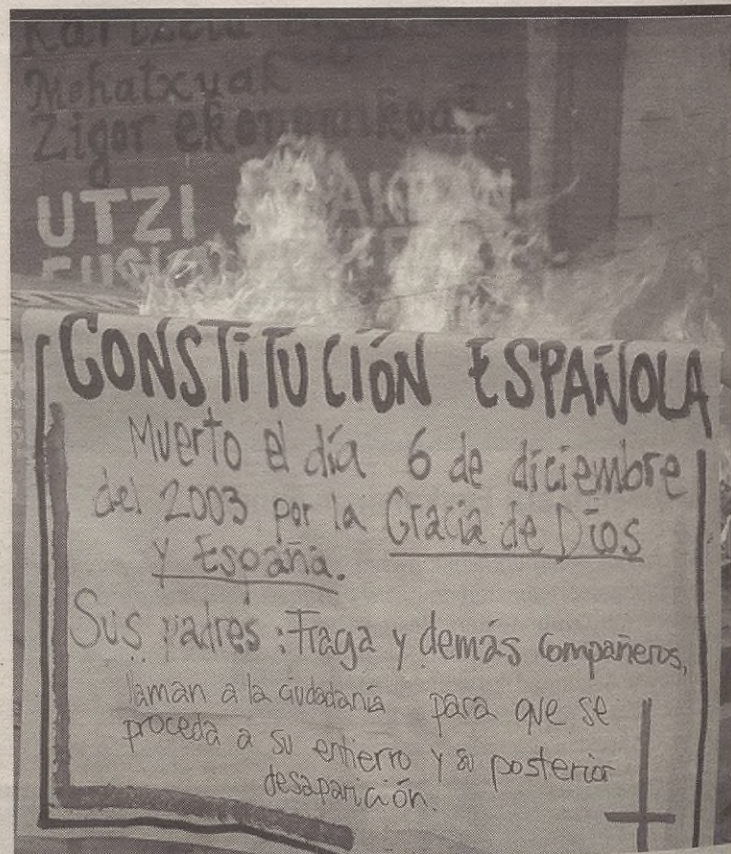 Mehatxuak
Zigor ekonomikoak
UTZI
CONSTITUCIÓN ESPAÑOLA
Muerto el día 6 de diciembre
del 2003 por la Gracia de Dios
y España.
Sus padres: Fraga y demás compañeros,
llaman a la ciudadanía para que se
proceda a su entierro y su posterior
desaparición.